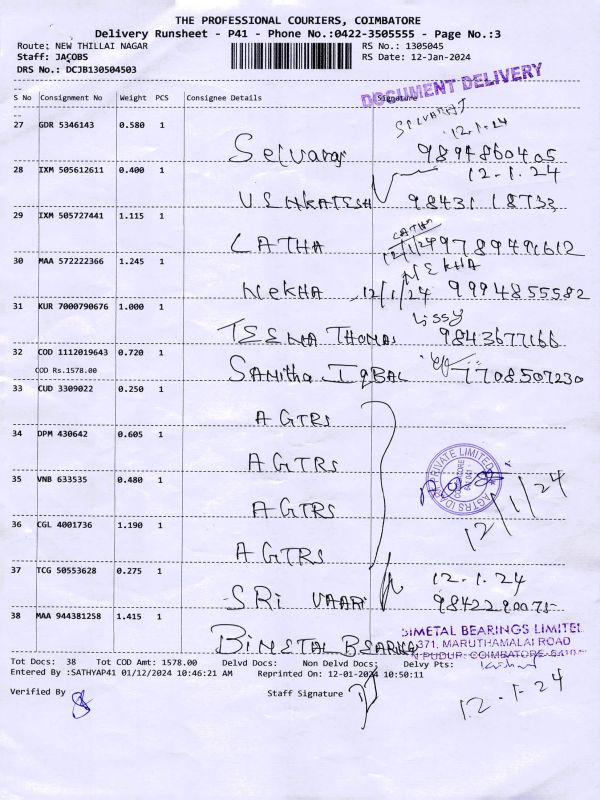 THE PROFESSIONAL COURIERS, COIMBATORE
Delivery Runsheet - P41 - Phone No.:0422-3505555 - Page No.:3
Route: NEW THILLAI NAGAR RS No.: 1305045
Staff: JACOBS RS Date: 12-Jan-2024
DRS No.: DCJB130504503
DOCUMENT DELIVERY
S No Consignment No Weight PCS Consignee Details Signature
SELVARAJ
12.1.24
27 GDR 5346143 0.580 1
Selvaraj 9894860405
28 IXM 505612611 0.400 1 12.1.24
VENKATESH 9843118733
29 IXM 505727441 1.115 1
LATHA
LATHA 12/1/24 9789491612
30 MAA 572222366 1.245 1 MEKHA
MEKHA 12/1/24 9994855582
31 KUR 7000790676 1.000 1 Lissy
TEENA THOMAS 9843677166
32 COD 1112019643 0.720 1
COD Rs.1578.00 Sanitha IQBAL 7708507230
33 CUD 3309022 0.250 1
AGTRS
34 DPM 430642 0.605 1
AGTRS
35 VNB 633535 0.480 1
AGTRS
PRIVATE LIMITED
AGTRS
12/1/24
36 CGL 4001736 1.190 1
AGTRS
37 TCG 50553628 0.275 1 12.1.24
SRI VAARI
38 MAA 944381258 1.415 1
BIMETAL BEARING
BIMETAL BEARINGS LIMITED
371, MARUTHAMALAI ROAD
Tot Docs: 38 Tot COD Amt: 1578.00 Delvd Docs: Non Delvd Docs: Delvy Pts:
Entered By :SATHYAP41 01/12/2024 10:46:21 AM Reprinted On: 12-01-2024 10:50:11
Verified By Staff Signature
12-1-24